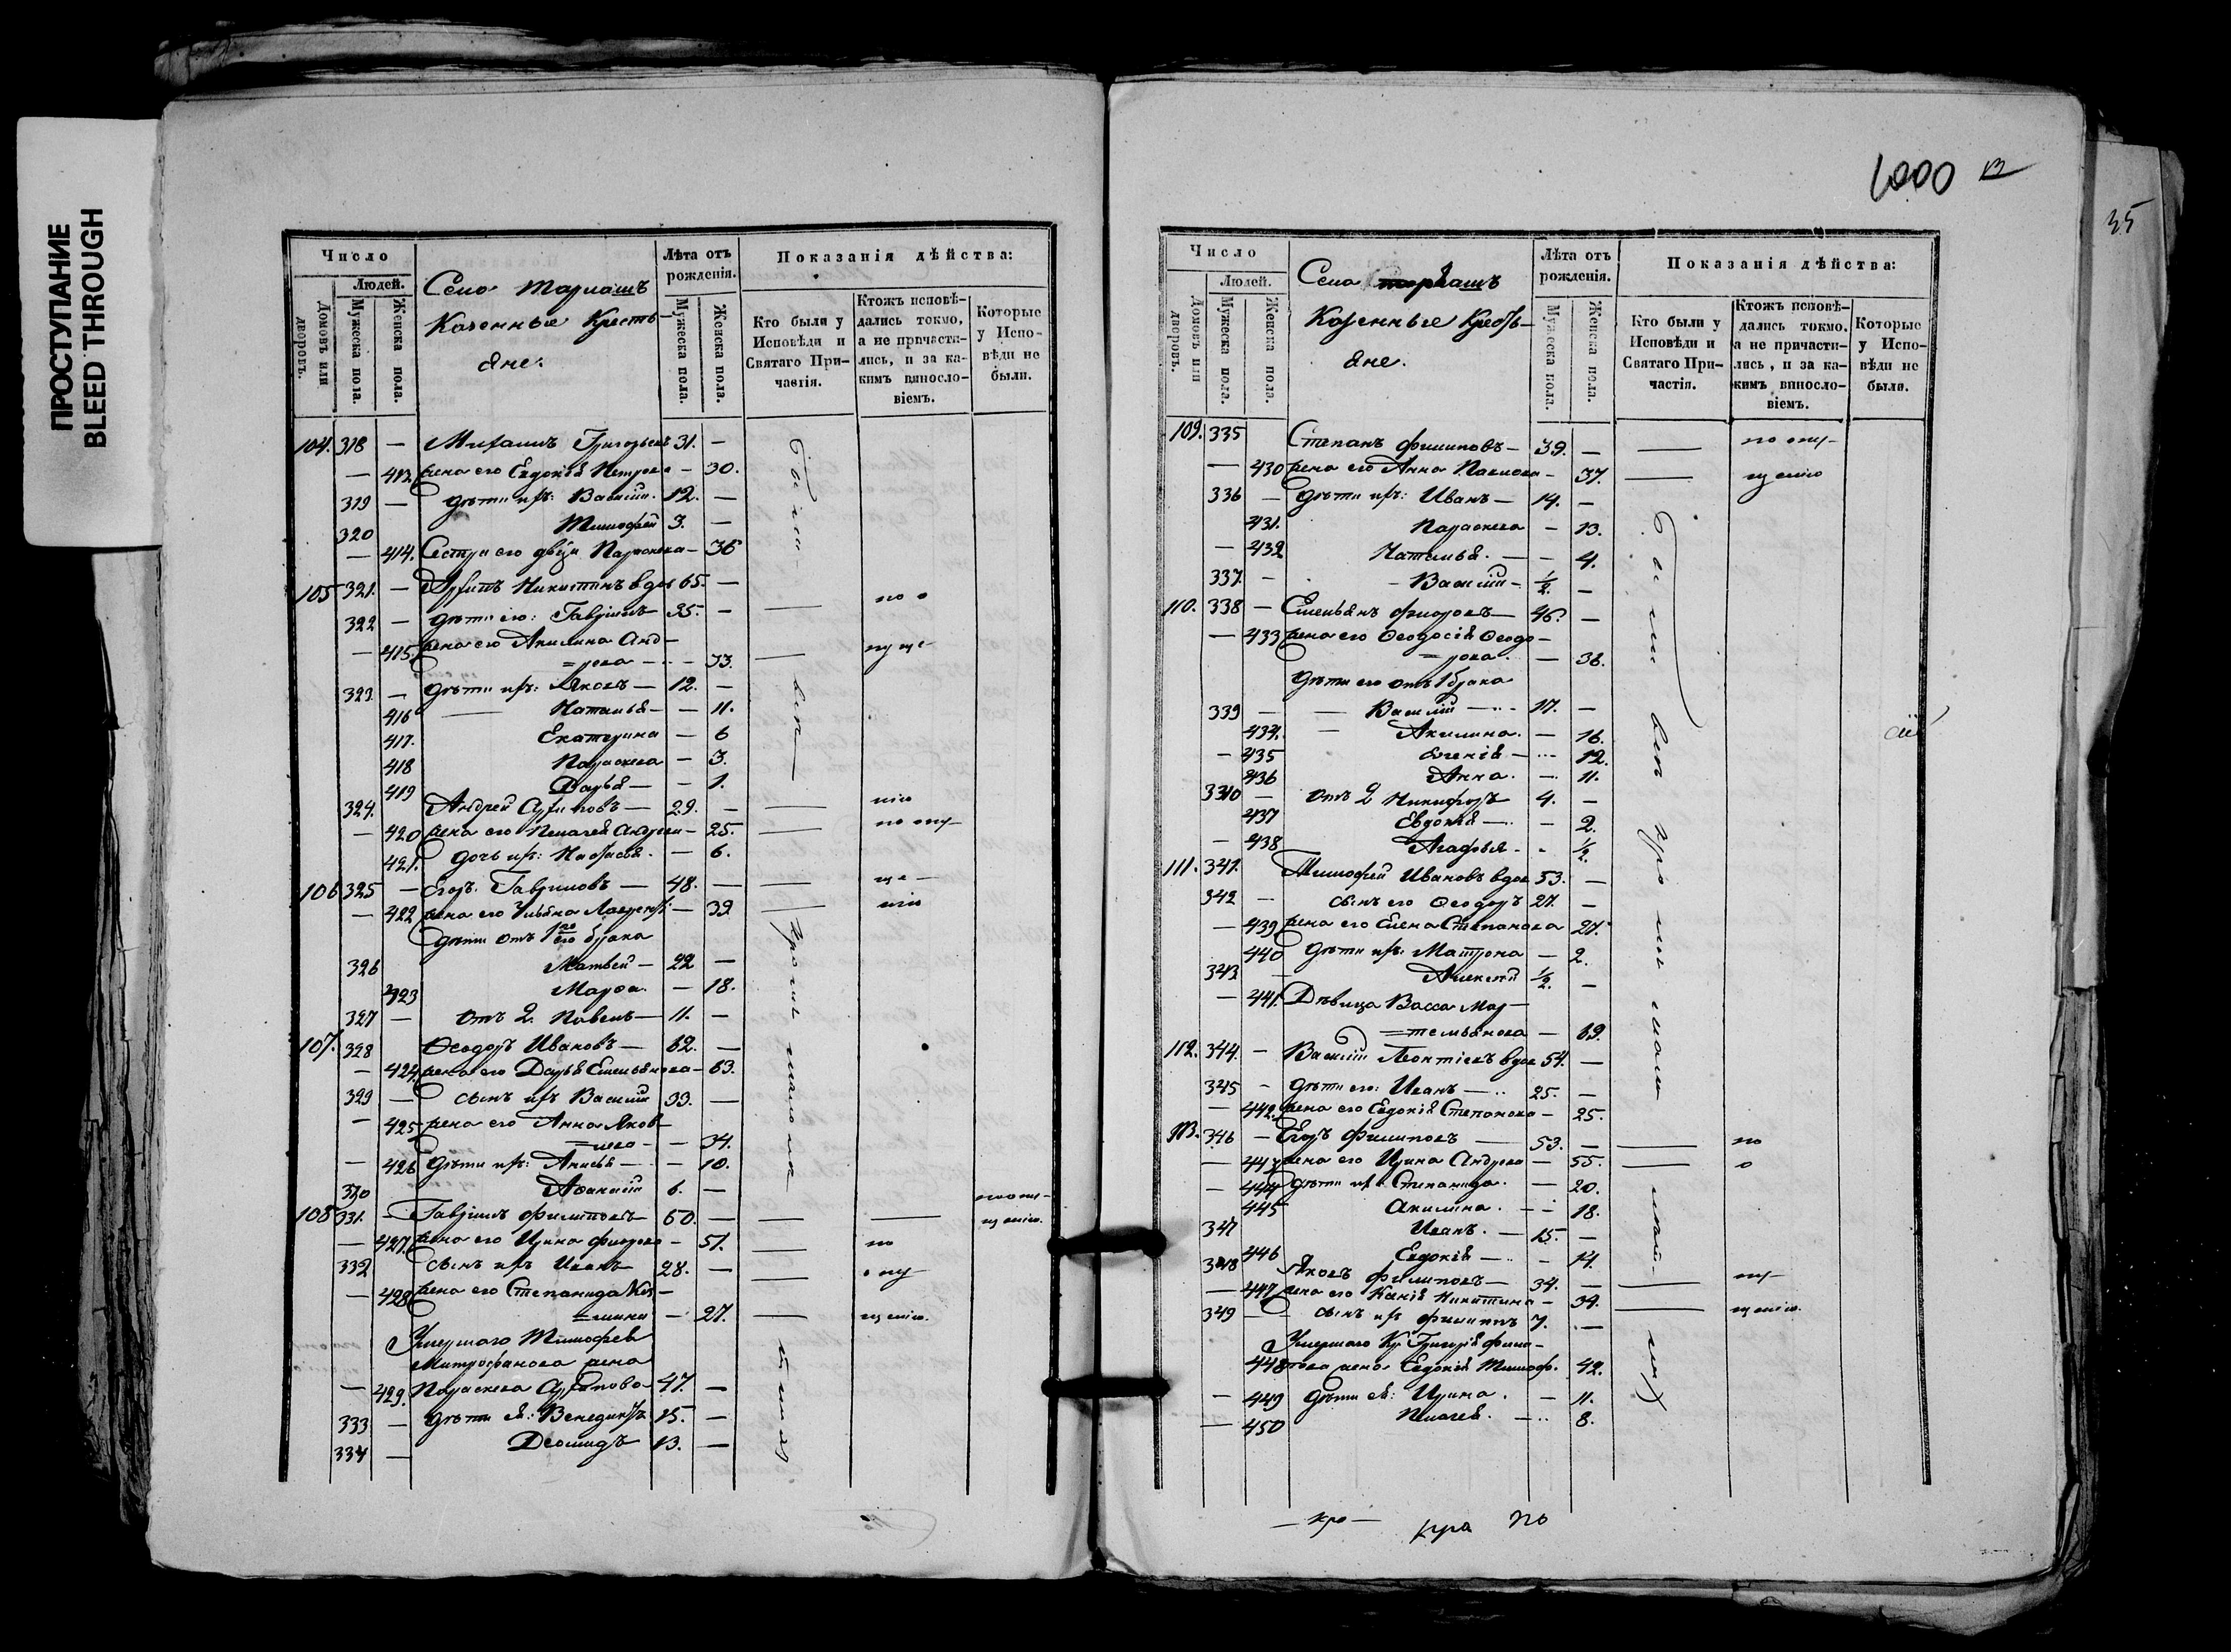 ПРОСТУПАНИЕ
BLEED THROUGH
Число
Людей.
Домовъ или дворовъ.
Мужеска пола.
Женска пола.
Село
Казенные Кресть-
яне.
Лѣта отъ рожденія.
Мужеска пола.
Женска пола.
Показанія дѣйства:
Кто были у Исповѣди и Святаго При-частія.
Ктожъ исповѣ-дались токмо, а не причасти-лись, и за ка-кимъ винносло-віемъ.
Которые у Испо-вѣди не были.
104. 318 — Михаилъ Григорьевъ 31. —
— 413 жена его Евдокія Петрова — 30.
319 — дѣти ихъ: Василій 12. —
320 Тимофей 3. —
— 414. Сестра его дѣвца Параскева — 36
105 321. — Архипъ Никитинъ вдов 65. —
322 — дѣти его: Гавріилъ 35. —
— 415. жена его Акилина Анд-
=рова — 33.
323 — дѣти ихъ: Яковъ — 12. —
416 Наталья — — 11.
417. Екатерина — 6
418 Параскева — 3.
419 Дарья — — 1.
324. Андрей Архиповъ — 29. —
— 420 жена его Пелагея Андреи — 25.
421. дочь ихъ: Настасья — 6.
106 325 — Егоръ Гавриловъ — 48. —
— 422 жена его Ульяна Лаврент — 39
дѣти отъ 1го брака
326 Матвей — 22 —
423 Марѳа — 18.
327 — отъ 2. Павелъ — 11. —
107. 328 Ѳеодоръ Ивановъ — 62. —
— 424. жена его Дарья Емельянова — 63.
329 — сынъ ихъ Василій 33. —
— 425 жена его Анна Яков-
=лева — — 34.
— 426 дѣти ихъ: Анисья — — 10.
330 Аѳанасій 6. —
108 331. — Гавріилъ Филиповъ 60. — — —
— 427. жена его Ирина — 51. — по
332 сынъ ихъ Иванъ 28. — — опу-
— 428 жена его Степанида
— 27. — щенію.
Умершаго Тимофея
Митрофанова жена
— 429. Параскева Архипова 47. —
333 — дѣти ея: Венедиктъ 15. —
334 — Деомидъ 13. —
1000
35
Число
Людей.
Домовъ или дворовъ.
Мужеска пола.
Женска пола.
Село
Казенные Кресть-
яне.
Лѣта отъ рожденія.
Мужеска пола.
Женска пола.
Показанія дѣйства:
Кто были у Исповѣди и Святаго При-частія.
Ктожъ исповѣ-дались токмо, а не причасти-лись, и за ка-кимъ винносло-віемъ.
Которые у Испо-вѣди не были.
109. 335 Степанъ Филиповъ — 39. — — по опу-
— 430 жена его Анна Павлова — 37. — щенію
336 — дѣти ихъ: Иванъ — 14. —
431. Параскева — 13.
— 432 Наталья. — — 4.
337. — Василій — ½. —
110. 338 — Емельянъ — 46. —
— 433 жена его Ѳеодосія Ѳеодо-
=рова — 36.
дѣти его отъ 1 брака
339 — Василій — 17. —
434. — Акилина. — 16.
— 435 — 12.
436 Анна. — 11.
340 — отъ 2 Никифоръ 4. —
437 Евдокія — — 2.
— 438 Агафья - - ½.
111. 341. Тимофей Ивановъ вдов 53. —
342 — сынъ его Ѳеодоръ 27. —
— 439 жена его Елена Степанова 27.
440 дѣти ихъ: Матрона — 2.
343 — Алексей ½. —
— 441. Дѣвица Васса Мар-
=темьянова — 69.
112. 344. — Василій Леонтіевъ вдов 54. —
345 - дѣти его: Иванъ — 25. —
— 442. жена его Евдокія Степанова — 25.
113. 346 — Егоръ Филиповъ — 53. — — по
— 443 жена его Ирина Андреева — 55. — о
— 444 дѣти ихъ Степанида. — 20.
445 Акилина. — 18.
347 Иванъ. — 15. —
446 Евдокія — - 14.
348 Яковъ Филиповъ — 34. — — пу-
— 447 жена его Ксенія Никитина — 34. — щенію.
349 — сынъ ихъ Филиппъ 7. —
Умершаго Кр Григорія Фили-
448 пова жена Евдокія Тимоф. 42.
— 449 дѣти ея: Ирина. — 11.
— 450 Пелагея. — 8.